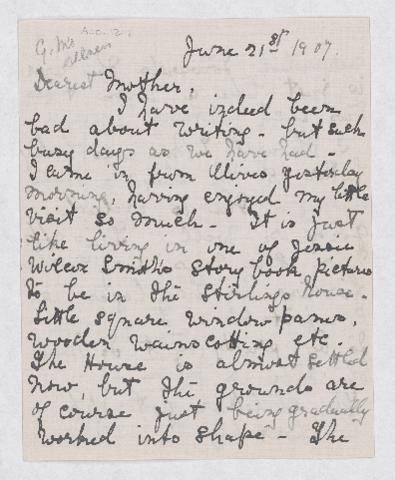 G. M's
illness
June 21st 1907.
Dearest Mother,
I have indeed been
bad about writing - but such
busy days as we have had -
I came in from Olives yesterday
morning, having enjoyed my little
visit so much - It is just
like living in one of Jessie
Wilcox Smith's story book pictures
to be in the Stirlings house -
Little square window panes,
wooden wainscotting etc.
The House is almost settled
now, but the grounds are
of course just being gradually
worked into shape - The